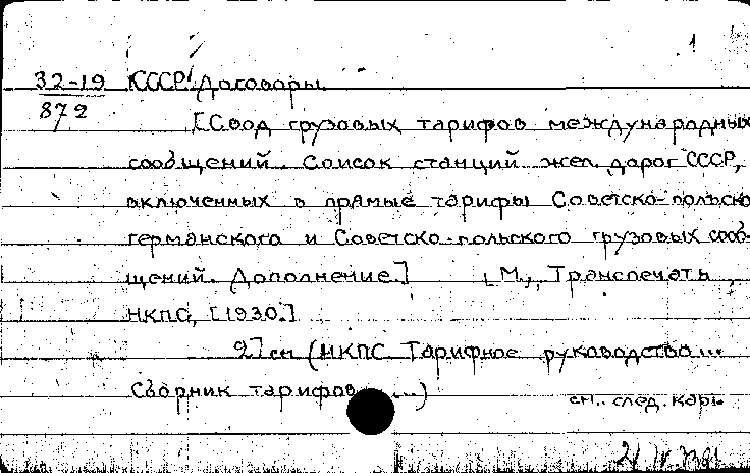 1
32-19 СССР. Договоры.
872
[Свод грузовых тарифов международных
сообщений. Список станций жел. дорог СССР,
включенных в прямые тарифы Советско-польско-
германского и Советско-польского грузовых сооб-
щений. Дополнение.] [М.], Транспечать
НКПС, [1930.]
27 см (НКПС. Тарифное руководство...
Сборник тарифов ...)
см. след. карт.